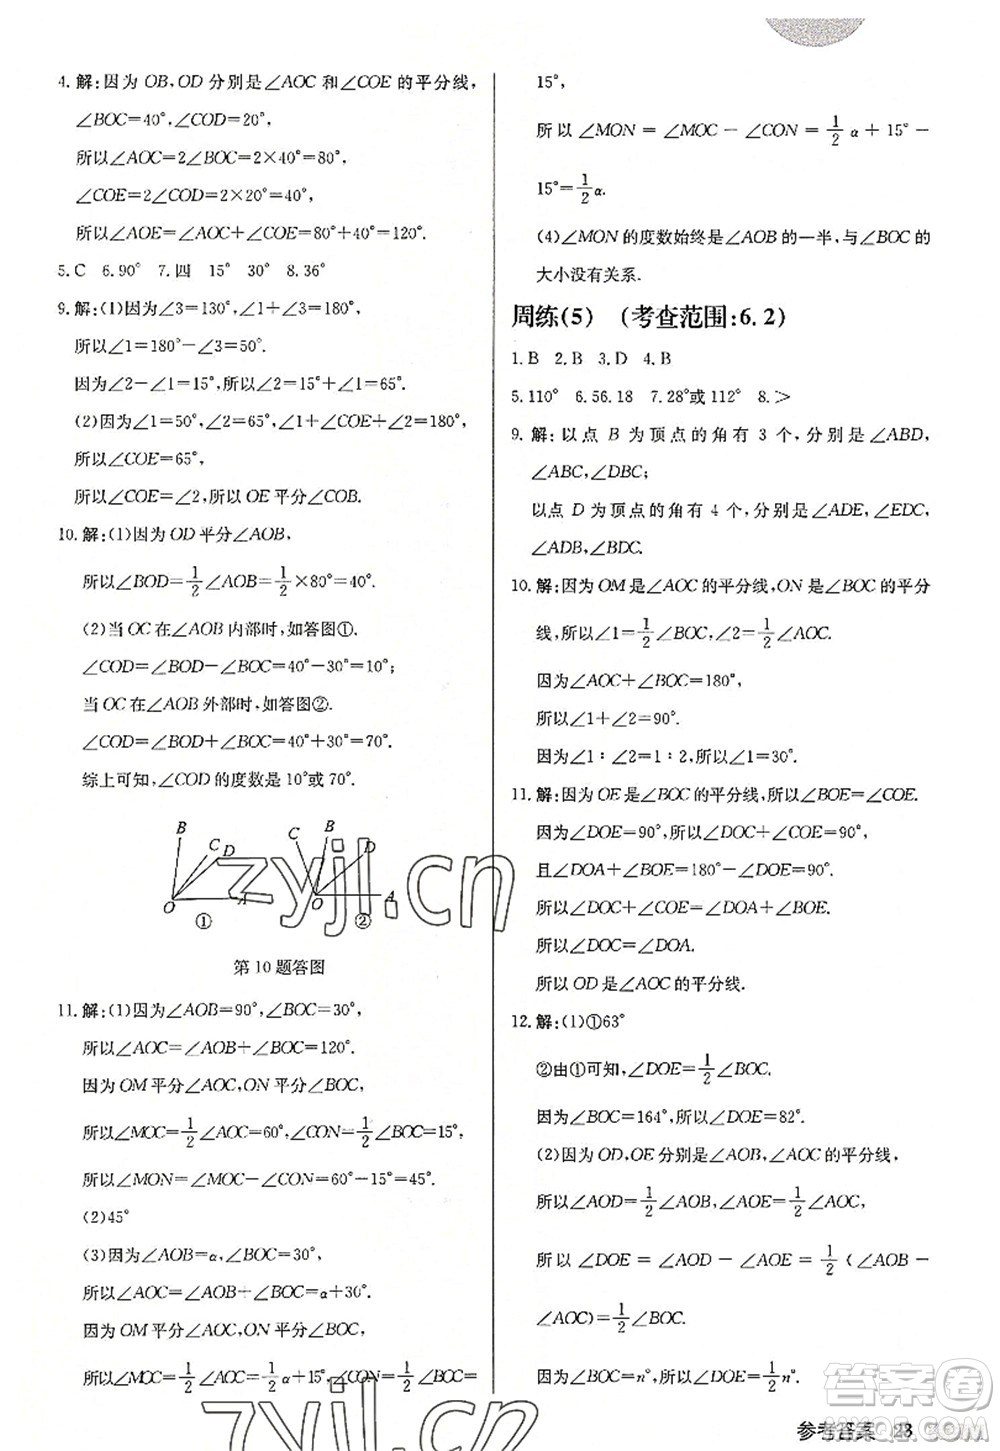 4. 解:因为 OB,OD 分别是∠AOC 和∠COE 的平分线,
∠BOC=40°,∠COD=20°,
所以∠AOC=2∠BOC=2×40°=80°,
∠COE=2∠COD=2×20°=40°,
所以∠AOE=∠AOC+∠COE=80°+40°=120°.
5. C 6. 90° 7. 四 15° 30° 8. 36°
9. 解:(1)因为∠3=130°,∠1+∠3=180°,
所以∠1=180°-∠3=50°.
因为∠2-∠1=15°,所以∠2=65°.
(2)因为∠1=50°,∠2=65°,∠1+∠COE+∠2=180°,
所以∠COE=65°.
所以∠COE=∠2,所以 OE 平分∠COB.
10. 解:(1)因为 OD 平分∠AOB,
所以∠BOD=1/2∠AOB=1/2×80°=40°.
(2)当 OC 在∠AOB 内部时,如答图①.
∠COD=∠BOD-∠BOC=40°-30°=10°;
当 OC 在∠AOB 外部时,如答图②.
∠COD=∠BOD+∠BOC=40°+30°=70°.
综上可知,∠COD 的度数是 10°或 70°.
B C D O A ①
C B D O A ②
第 10 题答图
11. 解:(1)因为∠AOB=90°,∠BOC=30°,
所以∠AOC=∠AOB+∠BOC=120°.
因为 OM 平分∠AOC,ON 平分∠BOC,
所以∠MOC=1/2∠AOC=60°,∠CON=1/2∠BOC=15°,
所以∠MON=∠MOC-∠CON=60°-15°=45°.
(2)45°
(3)因为∠AOB=α,∠BOC=30°,
所以∠AOC=∠AOB+∠BOC=α+30°.
因为 OM 平分∠AOC,ON 平分∠BOC,
所以∠MOC=1/2∠AOC=1/2α+15°,∠CON=1/2∠BOC=
15°,
所以∠MON=∠MOC-∠CON=1/2α+15°-
15°=1/2α.
(4)∠MON 的度数始终是∠AOB 的一半,与∠BOC 的
大小没有关系.
周练(5) (考查范围:6.2)
1. B 2. B 3. D 4. B
5. 110° 6. 56.18 7. 28°或 112° 8. >
9. 解:以点 B 为顶点的角有 3 个,分别是∠ABD,
∠ABC,∠DBC;
以点 D 为顶点的角有 4 个,分别是∠ADE,∠EDC,
∠ADB,∠BDC.
10. 解:因为 OM 是∠AOC 的平分线,ON 是∠BOC 的平分
线,所以∠1=1/2∠BOC,∠2=1/2∠AOC.
因为∠AOC+∠BOC=180°,
所以∠1+∠2=90°.
因为∠1∶∠2=1∶2,所以∠1=30°.
11. 解:因为 OE 是∠BOC 的平分线,所以∠BOE=∠COE.
因为∠DOE=90°,所以∠DOC+∠COE=90°,
且∠DOA+∠BOE=180°-∠DOE=90°.
所以∠DOC+∠COE=∠DOA+∠BOE.
所以∠DOC=∠DOA.
所以 OD 是∠AOC 的平分线.
12. 解:(1)①63°
②由①可知,∠DOE=1/2∠BOC.
因为∠BOC=164°,所以∠DOE=82°.
(2)因为 OD,OE 分别是∠AOB,∠AOC 的平分线,
所以∠AOD=1/2∠AOB,∠AOE=1/2∠AOC,
所以∠DOE=∠AOD-∠AOE=1/2(∠AOB-
∠AOC)=1/2∠BOC.
因为∠BOC=n°,所以∠DOE=1/2∠BOC=1/2n°.
zyjl.cn
zyjl.cn
答案圈
参考答案 23